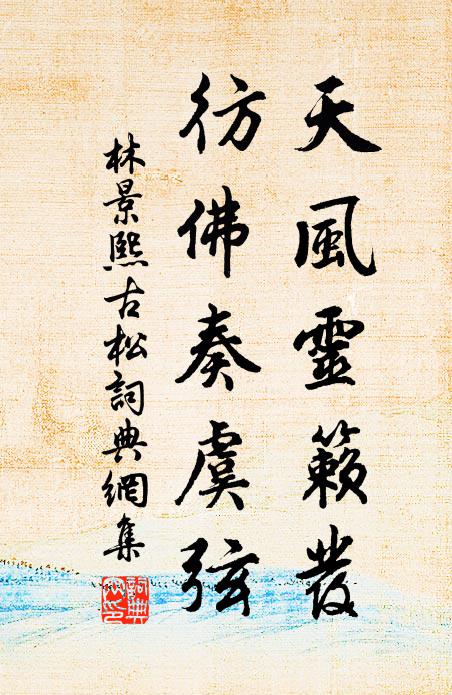 天風靈籟發
彷佛奏虞弦
林景熙古松詞典網集